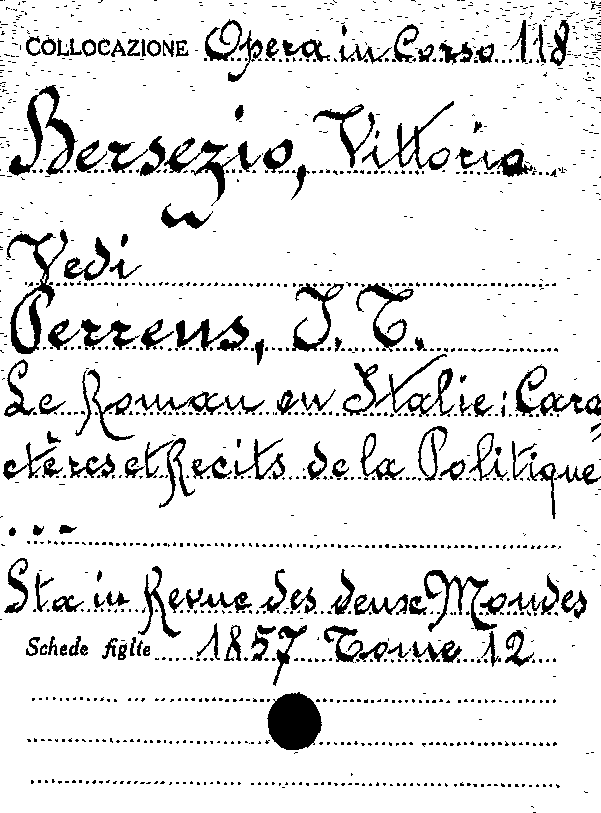 COLLOCAZIONE Opera in Corso 118
Bersezio, Vittorio
Vedi
Perrens, J. T.
Le Roman en Italie: Cara=
ctères et Recits de la Politique
...
Sta in Revue des deux Mondes
Schede figlie 1857 Tome 12